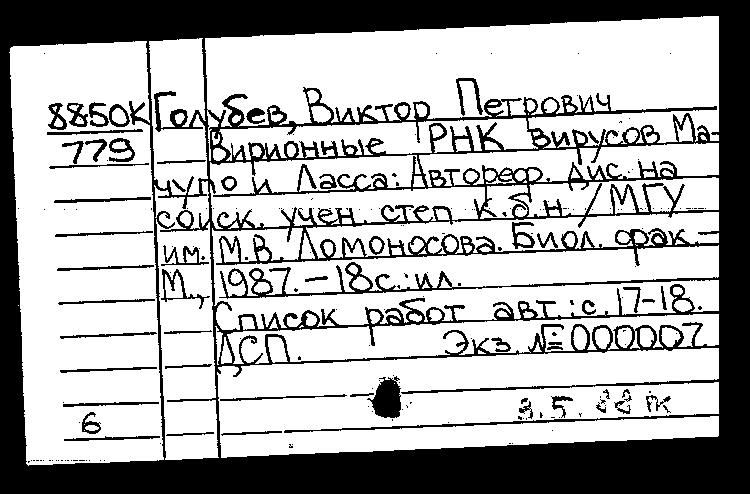 8850К Голубев, Виктор Петрович
779 Вирионные РНК вирусов Ма-
чупо и Ласса: Автореф. дис. на
соиск. учен. степ. к.б.н. / МГУ
им. М.В. Ломоносова. Биол. фак. –
М., 1987. – 18 с.: ил.
Список работ авт.: с. 17-18.
ДСП. Экз. № 000007
3.5.88
6